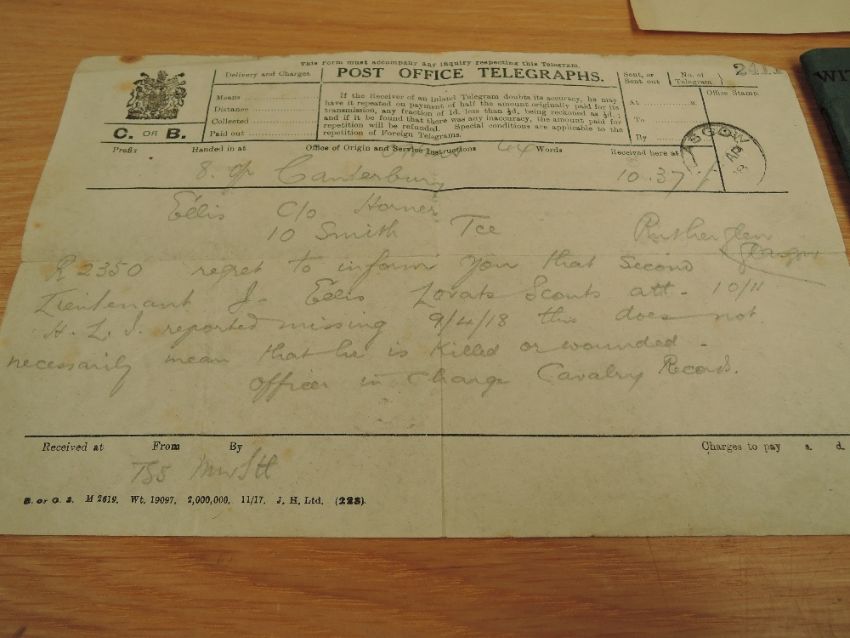 This Form must accompany any inquiry respecting this Telegram.
POST OFFICE TELEGRAPHS.
Delivery and Charges
Means
Distance
Collected
Paid out
C. OR B.
If the Receiver of an Inland Telegram doubts its accuracy, he may
have it repeated on payment of half the amount originally paid for its
transmission, any fraction of 1d. less than ½d. being reckoned as ½d.;
and if it be found that there was any inaccuracy, the amount paid for
repetition will be refunded. Special conditions are applicable to the
repetition of Foreign Telegrams.
Sent, or
Sent out
At
To
By
No. of
Telegram
Office Stamp
ASGOW
Prefix Handed in at Office of Origin and Service Instructions 44 Words Received here at
Canterbury 10.37
Ellis C/o Horner
10 Smith Tce Rutherglen
Glasgow
R 2350 regret to inform you that Second
Lieutenant J. Ellis Lovats Scouts att. 10/11
H. L. I. reported missing 9/4/18 this does not
necessarily mean that he is killed or wounded.
Officer in Charge Cavalry Records.
Received at From By Charges to pay s. d.
TSS
B. or O. S. M 2619. Wt. 19097. 2,000,000. 11/17. J. H. Ltd. (223).
WIT